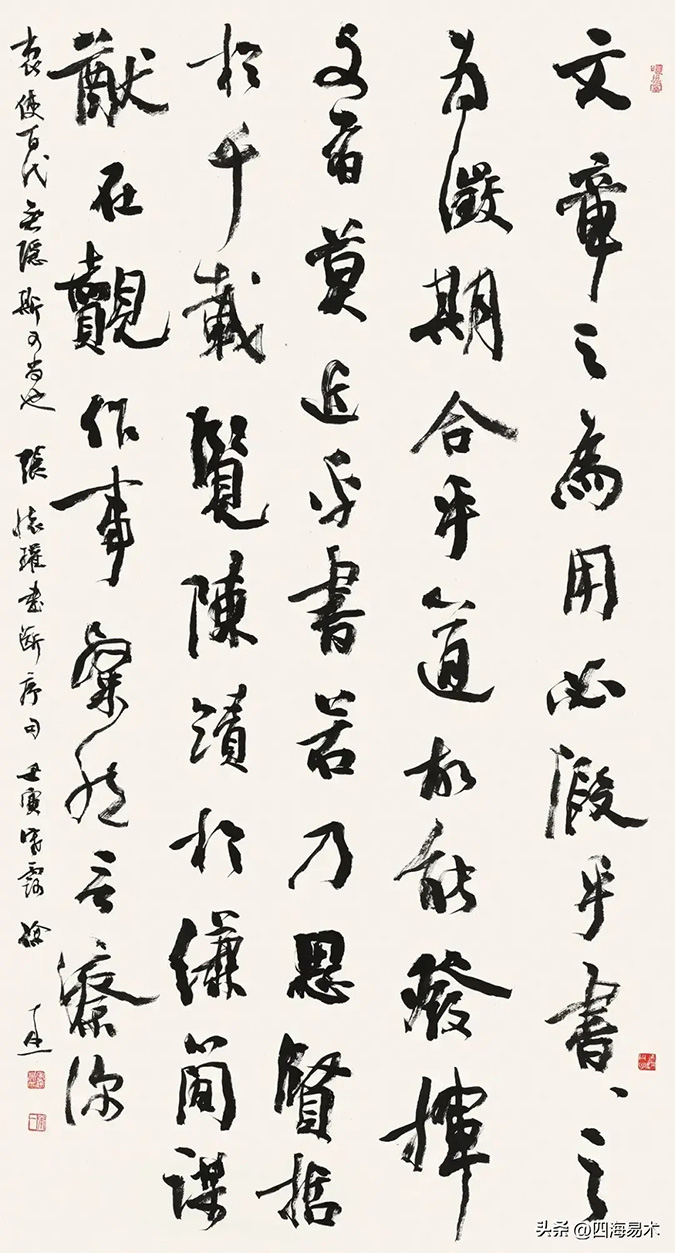 文章之為用必假乎書、之
为徵期合乎道故能發揮
文者莫近乎書若乃思賢哲
於千載覽陳蹟於縑簡謀
猷在覿作事粲然言察深
衷使百代無隐斯可尚也 張懷瓘書斷序句 壬寅寒露 徐
头条 @四海易术